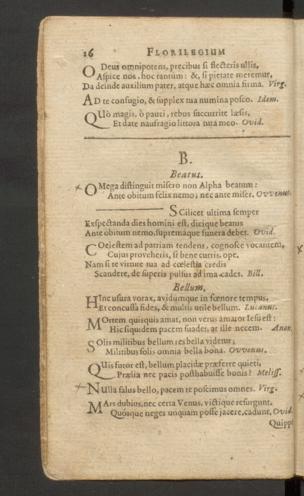 16 FLORILEGIUM
O Deus omnipotens, precibus si flecteris ullis,
Aspice nos, hoc tantum: &, si pietate meremur,
Da deinde auxilium pater, atque hæc omnia firma. Virg.
AD te confugio, & supplex tua numina posco. Idem.
QUò magis, ô pauci, rebus succurrite læsis,
Et date naufragio littora tuta meo. Ovid.
B.
Beatus.
OMega distinguit misero non Alpha beatum:
Ante obitum felix nemo; nec ante miser. Owenus.
SCilicet ultima semper
Exspectanda dies homini est, dicique beatus
Ante obitum nemo, supremaque funera debet. Ovid.
COelestem ad patriam tendens, cognosce vocantem,
Cujus proveheris, si bene curris, ope.
Nam si te virtute tua ad cœlestia credis
Scandere, de superis pulsus ad ima cades. Bill.
Bellum.
HInc usura vorax, avidumque in fœnore tempus,
Et concussa fides, & multis utile bellum. Lucanus.
MOrtem quisquis amat, non verus amator Jesu est:
Hic siquidem pacem suadet, at ille necem.
SOlis militibus bellum res bella videtur;
Militibus solis omnia bella bona. Owenus.
QUis furor est, bellum placidæ præferre quieti,
Prælia nec pacis posthabuisse bonis? Meliss.
NUlla salus bello, pacem te poscimus omnes. Virg.
MArs dubius, nec certa Venus, victique resurgunt,
Quosque neges unquam posse jacere, cadunt. Ovid.
Quippe